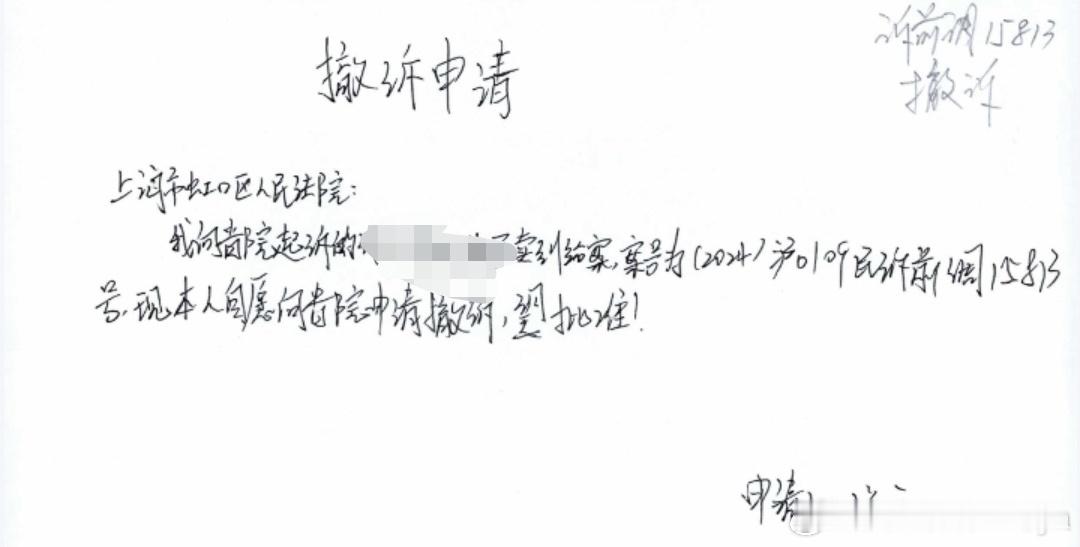 诉前调15813
撤诉
撤诉申请
上海市虹口区人民法院:
我向贵院起诉的 卖纠纷案,案号为(2024)沪0109民诉前调15813
号,现本人自愿向贵院申请撤诉,望批准!
申请